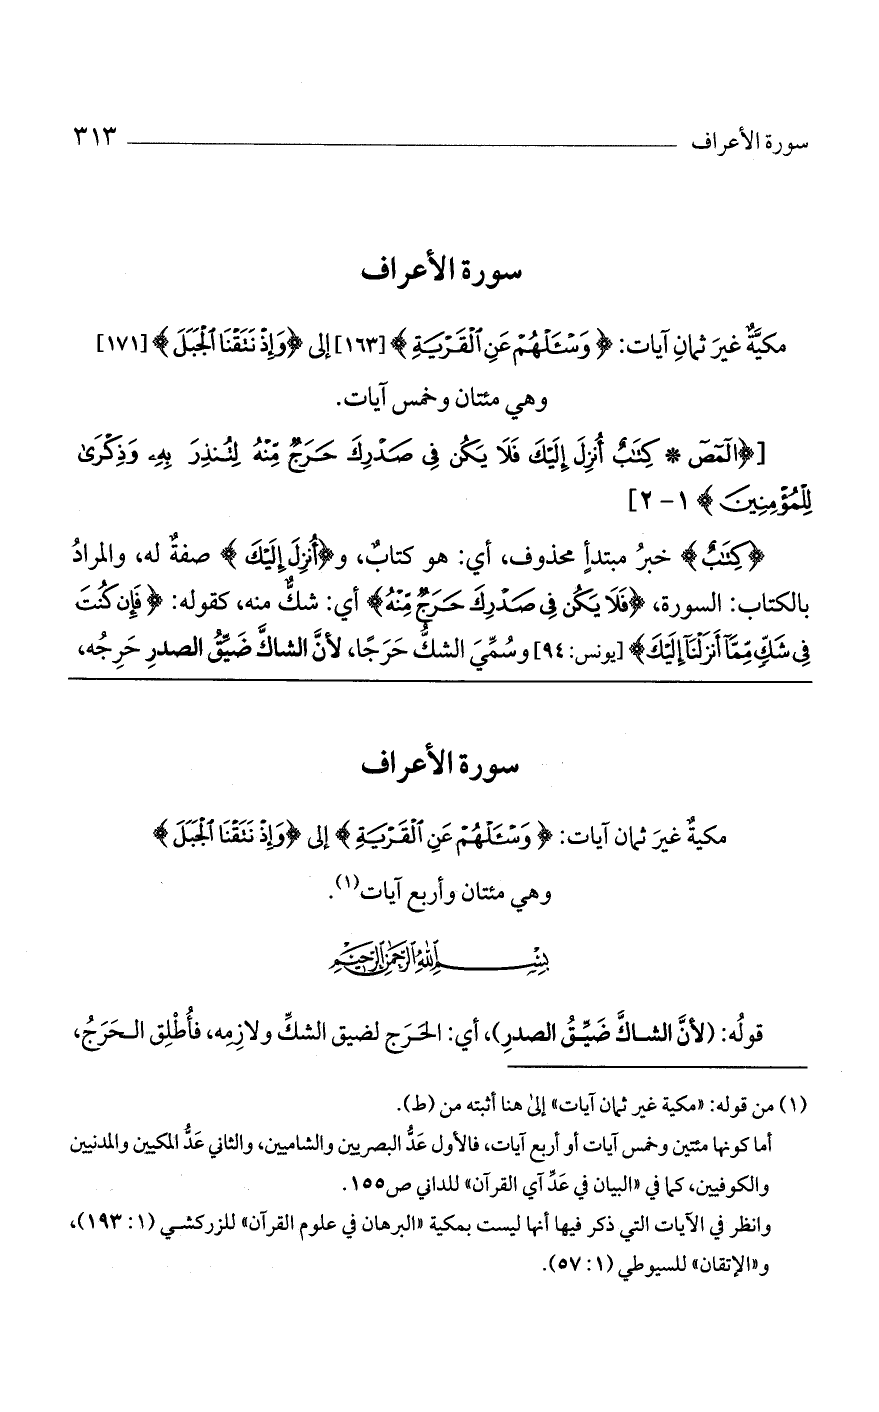 سورة الأعراف ٣١٣
سورة الأعراف
مكيَّةٌ غيرَ ثمانِ آيات: ﴿وَسْـَٔلْهُمْ عَنِ ٱلْقَرْيَةِ﴾ [١٦٣] إلى ﴿وَإِذْ نَتَقْنَا ٱلْجَبَلَ﴾ [١٧١]
وهي مئتان وخمس آيات.
[﴿الٓمٓصٓ * كِتَٰبٌ أُنزِلَ إِلَيْكَ فَلَا يَكُن فِى صَدْرِكَ حَرَجٌ مِّنْهُ لِتُنذِرَ بِهِۦ وَذِكْرَىٰ
لِلْمُؤْمِنِينَ﴾ ١ - ٢]
﴿كِتَٰبٌ﴾ خبرُ مبتدأٍ محذوف، أي: هو كتابٌ، و﴿أُنزِلَ إِلَيْكَ﴾ صفةٌ له، والمرادُ
بالكتاب: السورة، ﴿فَلَا يَكُن فِى صَدْرِكَ حَرَجٌ مِّنْهُ﴾ أي: شكٌّ منه، كقوله: ﴿فَإِن كُنتَ
فِى شَكٍّ مِّمَّآ أَنزَلْنَآ إِلَيْكَ﴾ [يونس: ٩٤] وسُمِّيَ الشكُّ حَرَجًا، لأنَّ الشاكَّ ضَيِّقُ الصدرِ حَرِجُه،
سورة الأعراف
مكيةٌ غيرَ ثمان آيات: ﴿وَسْـَٔلْهُمْ عَنِ ٱلْقَرْيَةِ﴾ إلى ﴿وَإِذْ نَتَقْنَا ٱلْجَبَلَ﴾
وهي مئتان وأربع آيات(١).
بِسْمِ ٱللَّهِ ٱلرَّحْمَٰنِ ٱلرَّحِيمِ
قولُه: (لأنَّ الشاكَّ ضَيِّقُ الصدرِ)، أي: الحَرَج لضيق الشكِّ ولازمِه، فأُطْلِق الحَرَجُ،
(١) من قوله: «مكية غير ثمان آيات» إلىٰ هنا أثبته من (ط).
أما كونها مئتين وخمس آيات أو أربع آيات، فالأول عَدُّ البصريين والشاميين، والثاني عَدُّ المكيين والمدنيين
والكوفيين، كما في «البيان في عَدِّ آي القرآن» للداني ص١٥٥.
وانظر في الآيات التي ذكر فيها أنها ليست بمكية «البرهان في علوم القرآن» للزركشي (١: ١٩٣)،
و«الإتقان» للسيوطي (١: ٥٧).